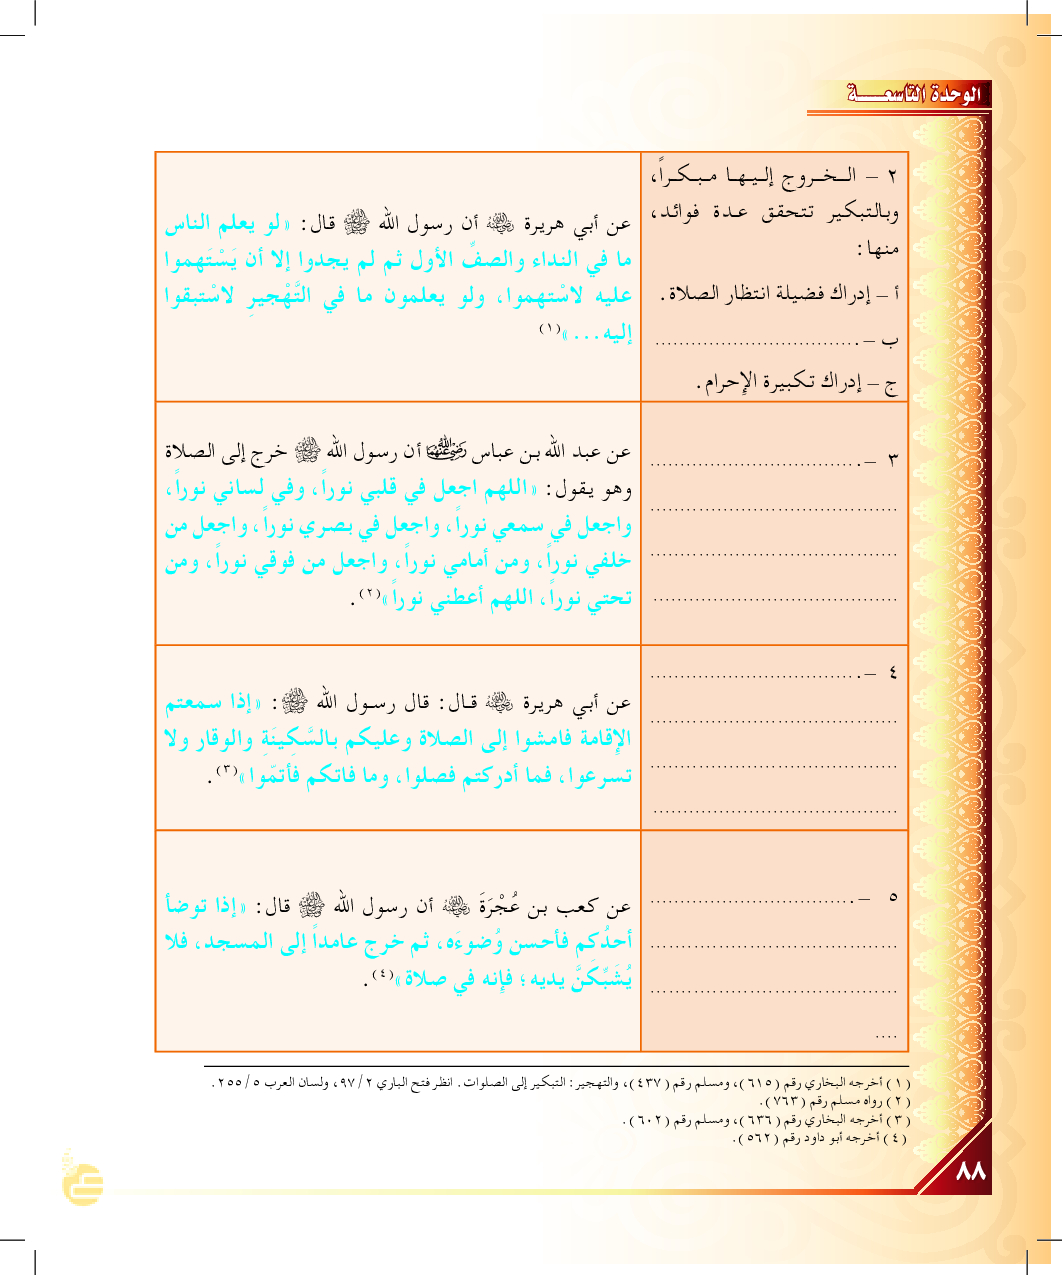 الوحدة التاسعـــة
٢ – الـخـروج إلـيـهـا مـبـكـراً،
وبـالتبكير تتحقق عـدة فوائـد،
منهـا:
أ – إدراك فضيلة انتظار الصلاة.
ب – .................................
ج – إدراك تكبيرة الإحرام.
عن أبي هريرة رضي الله عنه أن رسول الله ﷺ قال: «لو يعلم الناس
ما في النداء والصفِّ الأول ثم لم يجدوا إلا أن يَسْتَهموا
عليه لاسْتهموا، ولو يعلمون ما في التَّهْجيرِ لاسْتبقوا
إليه...»(١)
٣ – .................................
........................................
........................................
........................................
عن عبد الله بن عباس رضي الله عنهما أن رسول الله ﷺ خرج إلى الصلاة
وهو يقول: «اللهم اجعل في قلبي نوراً، وفي لساني نوراً،
واجعل في سمعي نوراً، واجعل في بصري نوراً، واجعل من
خلفي نوراً، ومن أمامي نوراً، واجعل من فوقي نوراً، ومن
تحتي نوراً، اللهم أعطني نوراً»(٢).
٤ – .................................
........................................
........................................
........................................
عن أبي هريرة رضي الله عنه قـال: قال رسـول الله ﷺ: «إذا سمعتم
الإقامة فامشوا إلى الصلاة وعليكم بالسَّكِينَةِ والوقار ولا
تسرعوا، فما أدركتم فصلوا، وما فاتكم فأتمّوا»(٣).
٥ – .................................
........................................
........................................
....
عن كعب بن عُجْرَةَ رضي الله عنه أن رسول الله ﷺ قال: «إذا توضأ
أحدُكم فأحسن وُضوءَه، ثم خرج عامداً إلى المسجد، فلا
يُشَبِّكَنَّ يديه؛ فإنه في صلاة»(٤).
(١) أخرجه البخاري رقم (٦١٥)، ومسلم رقم (٤٣٧)، والتهجير: التبكير إلى الصلوات. انظر فتح الباري ٩٧/٢، ولسان العرب ٢٥٥/٥.
(٢) رواه مسلم رقم (٧٦٣).
(٣) أخرجه البخاري رقم (٦٣٦)، ومسلم رقم (٦٠٢).
(٤) أخرجه أبو داود رقم (٥٦٢).
٨٨